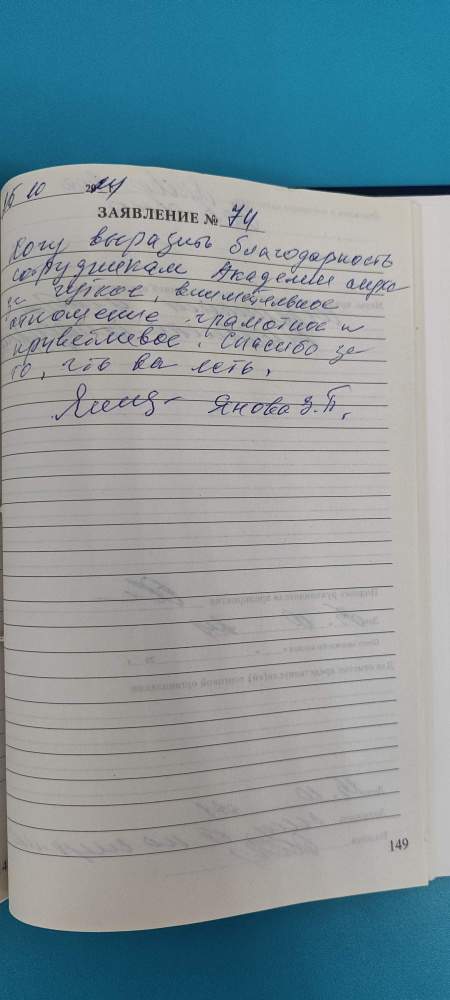 10 2024
ЗАЯВЛЕНИЕ № 74
Хочу выразить благодарность
сотрудникам Академии слуха
за чуткое, внимательное
отношение грамотное и
приветливое. Спасибо за
то, что вы есть.
Янова З.П.
149